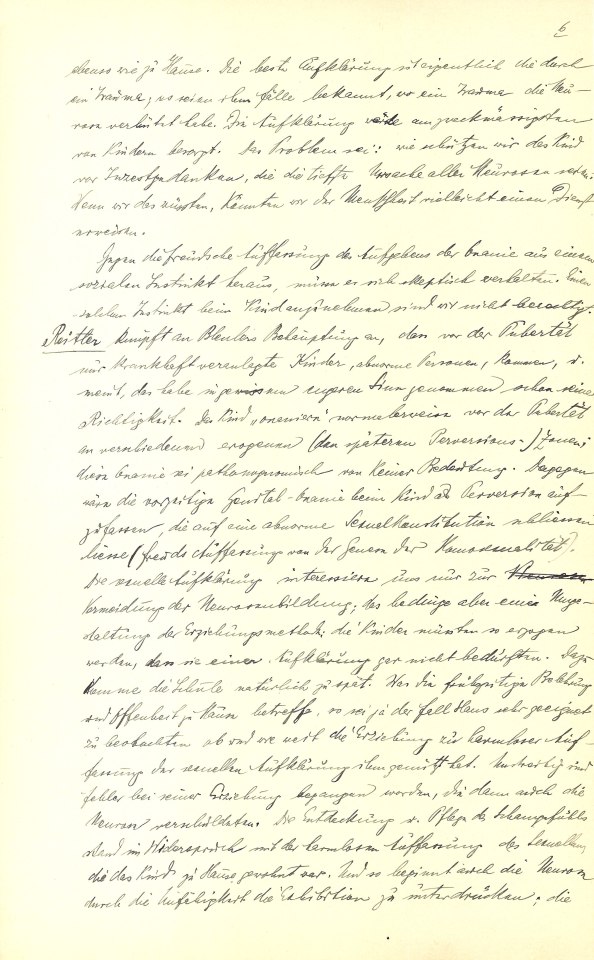 6
ebenso wie zu Hause. Die beste Aufklärung ist eigentlich die durch
ein Trauma; es seien ihm Fälle bekannt, wo ein Trauma die Neu-
rose verhütet habe. Die Aufklärung werde am zweckmässigsten
von Kindern besorgt. Das Problem sei: wie schützen wir das Kind
vor Inzestgedanken, die die tiefste Ursache aller Neurosen seien.
Wenn wir das wüssten, könnten wir der Menschheit vielleicht einen Dienst
erweisen.
Gegen die freudsche Auffassung des Aufgebens der Onanie aus einem
sozialen Instinkt heraus, müsse er sich skeptisch verhalten. Einen
solchen Instinkt beim Kind anzunehmen sind wir nicht berechtigt.
Reitler knüpft an Bleulers Behauptung an, dass vor der Pubertät
nur krankhaft veranlagte Kinder, abnorme Personen, kommen, u.
meint, das habe in gewissem engeren Sinn genommen schon seine
Richtigkeit. Das Kind „onaniere“ normalerweise vor der Pubertät
an verschiedenen erogenen (den späteren Perversions-) Zonen;
diese Onanie sei pathognomonisch von keiner Bedeutung. Dagegen
wäre die vorzeitige Genital-Onanie beim Kind als Perversion auf-
zufassen, die auf eine abnorme Sexualkonstitution schliessen
liesse (Freuds Auffassung von der Genese der Homosexualität).
Die sexuelle Aufklärung interessiere uns nur zur
Vermeidung der Neurosenbildung; das bedinge aber eine Umge-
staltung der Erziehungsmethode; die Kinder müssten so erzogen
werden, dass sie einer Aufklärung gar nicht bedürften. Dazu
komme die Schule natürlich zu spät. Was die frühzeitige Belehrung
und Offenheit zu Hause betreffe, so sei ja der Fall Hans sehr geeignet
zu beobachten ob und wie weit die Erziehung zur harmlosen Auf-
fassung der sexuellen Aufklärung ihm genützt hat. Anderseits sind
Fehler bei seiner Erziehung begangen worden, die dann auch die
Neurose verschuldeten. Die Entdeckung u. Pflege des Schamgefühls
stand im Widerspruch mit der harmlosen Auffassung des Sexuellen,
die das Kind zu Hause gewohnt war. Und so beginnt auch die Neurose
durch die Unfähigkeit die Exhibition zu unterdrücken; die